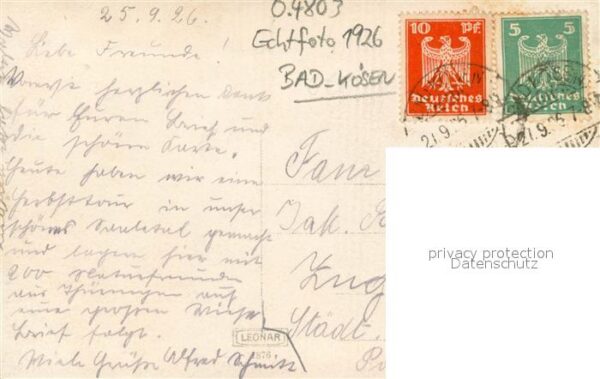 25.9.26.
0.4803
Echtfoto 1926
BAD-KÖSEN
10 Pf.
Deutsches
Reich
5 5
Deutsches
Reich
27.9.26
27.9.26
Liebe Freunde!
herzlichen Dank
für Euren Brief und
die schöne Karte.
Heute haben wir eine
Herbsttour in unser
schönes Saaletal gemacht
und lagen hier mit
200 Naturfreunden
aus Thüringen auf
eine großen Wiese
Brief folgt.
Viele Grüße Alfred Schmidt
Fam
Jak.
Zug
Städt.
LEONAR
privacy protection
Datenschutz